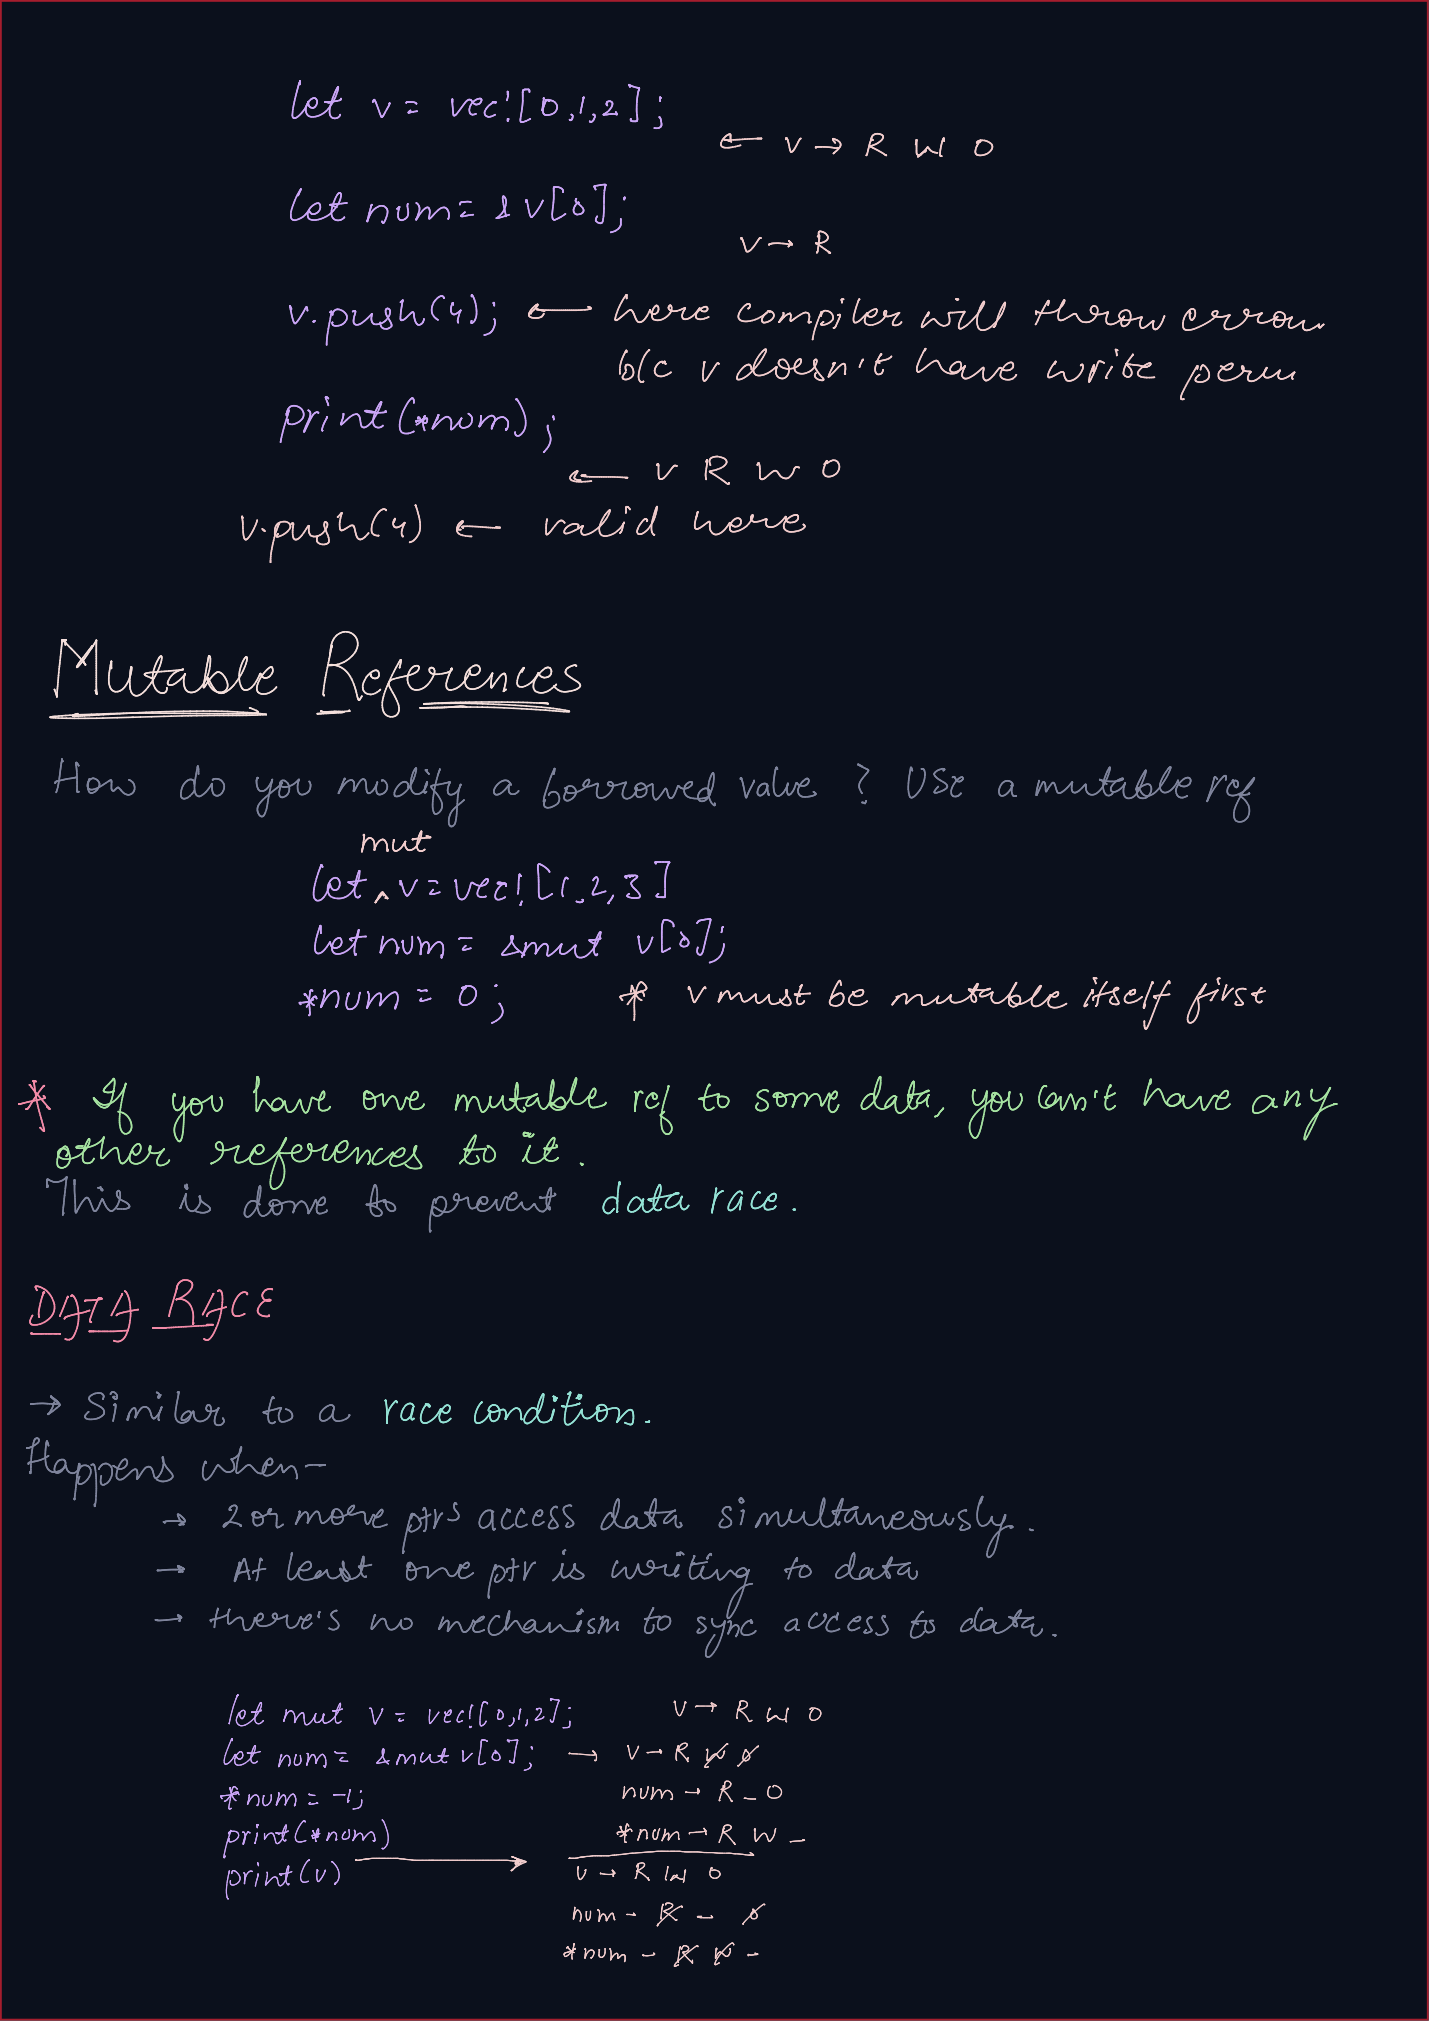 let v = vec![0,1,2];
← v → R W O
let num = &v[0];
v → R
v.push(4); ← here compiler will throw error
b/c v doesn't have write perm
print(*num);
← v R W O
v.push(4) ← valid here
Mutable References
How do you modify a borrowed value ? Use a mutable ref
mut
let ^ v = vec![1,2,3]
let num = &mut v[0];
*num = 0; * v must be mutable itself first
* If you have one mutable ref to some data, you can't have any
other references to it.
This is done to prevent data race.
DATA RACE
→ Similar to a race condition.
Happens when –
→ 2 or more ptrs access data simultaneously.
→ At least one ptr is writing to data
→ there's no mechanism to sync access to data.
let mut v = vec![0,1,2]; v → R W O
let num = &mut v[0]; → v → R W O
*num = -1; num → R _ O
print(*num) *num → R W _
print(v) → v → R W O
num - R - O
*num - R W -